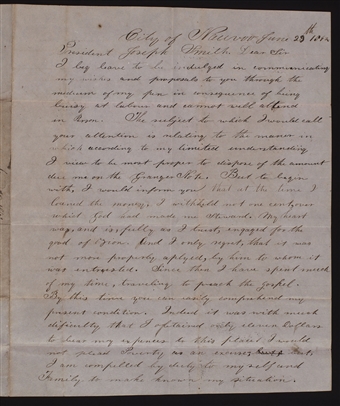 City of Nauvoo June 29th
President Joseph Smith Dear Sir
I beg leave to be indulged in communicating
my wishes and proposals to you through the
medium of my pen in consequence of being
busy at labour and cannot well attend
in Person. The subject to which I would call
your attention is relating to the manner in
which according to my limited understanding
I view to be most proper to dispose of the amount
due me on the Granger Note. But to begin
with, I would inform you that at the time I
loaned the money, I withheld not one cent over
which God had made me Steward. My heart
was, and is, fully as I trust, engaged for the
good of Zion. And I only regret, that it was
not more properly applyed, by him to whom it
was entrusted. Since then I have spent much
of my time, traveling to preach the Gospel.
By this time you can easily comprehend my
present condition. Indeed it was with much
difficulty that I obtained only eleven Dollars
to bear my expenses to this place. I would
not plead Poverty as an excuse, but
I am compelled by duty to myself and
Family to make known my situation.